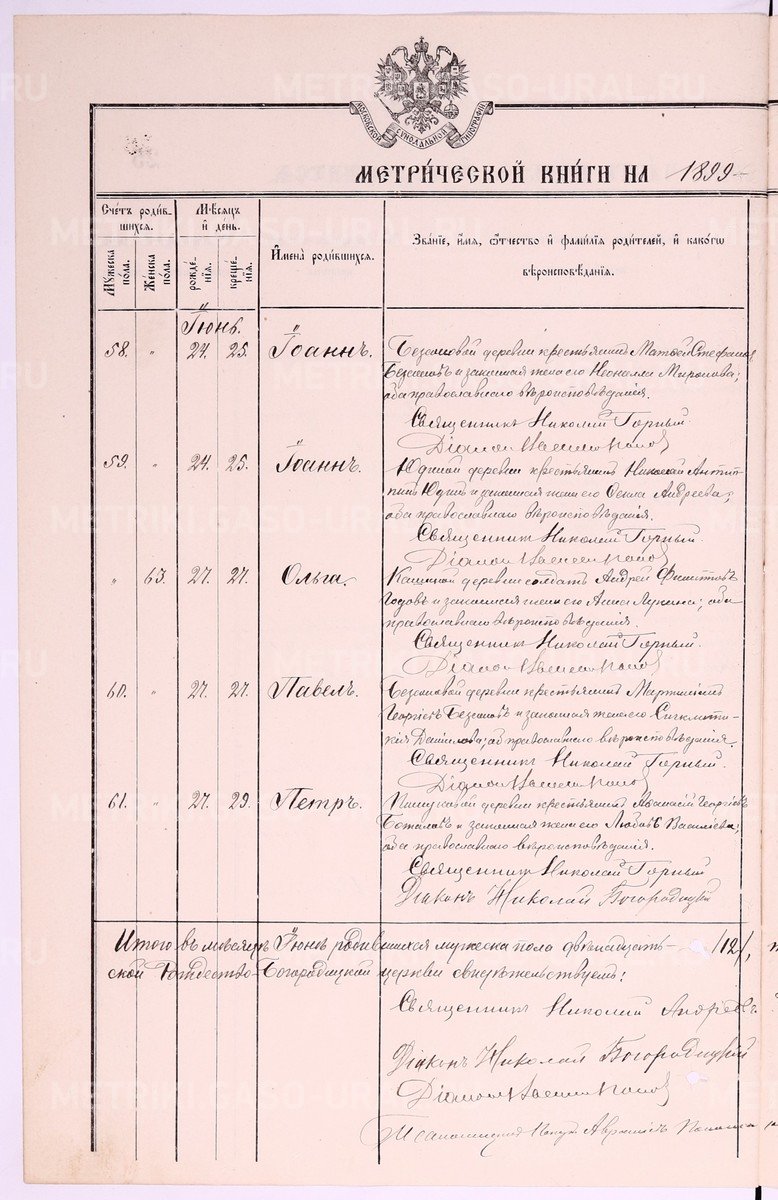 МОСКОВСКОЙ СѴНОДАЛЬНОЙ ТИПОГРАФІИ
МЕТРИ́ЧЕСКОЙ КНИ́ГИ НА 1899
Сче́тъ роди́в-
шихся.
Мѣ́сяцъ
и҆ де́нь.
И҆мена̀ роди́вшихся.
Зва́нїе, и҆́мѧ, ѻ҆́тчество и҆ фами́лїѧ роди́телей, и҆ како́гѡ
вѣроисповѣ́данїѧ.
Му́жеска
по́ла.
Же́нска
по́ла.
рожде́-
нїѧ.
креще́-
нїѧ.
Іюнь.
58. " 24. 25. Іоаннъ. Безсоновой деревни крестьянинъ Матѳей Стефановъ
Безсоновъ и законная жена его Неонилла Миронова;
оба православнаго вѣроисповѣданія.
Священникъ Николай Горный.
Діаконъ
59. " 24. 25. Іоаннъ. Юдиной деревни крестьянинъ Николай Антип-
пинъ Юдинъ и законная жена его Ѳекла Андреева;
оба православнаго вѣроисповѣданія.
Священникъ Николай Горный.
Діаконъ
" 63. 27. 27. Ольга. деревни солдатъ Андрей
и законная жена его Анна Лукина; оба
православнаго вѣроисповѣданія.
Священникъ Николай Горный.
Діаконъ
60. " 27. 27. Павелъ. Безсоновой деревни крестьянинъ
Георгіевъ Безсоновъ и законная жена его Синклити-
кія Данилова; оба православнаго вѣроисповѣданія.
Священникъ Николай Горный.
Діаконъ
61. " 27. 29. Петръ. деревни крестьянинъ Аѳанасій Георгіевъ
и законная жена его Любовь Василіева;
оба православнаго вѣроисповѣданія.
Священникъ Николай Горный
Діаконъ Николай Богородицкій
Итого въ мѣсяцѣ Іюнѣ родившихся мужеска пола двѣнадцать /12/,
ской Рождество-Богородицкой церкви свидѣтельствуемъ:
Священникъ Николай Андреевъ
Діаконъ Николай Богородицкій
Діаконъ